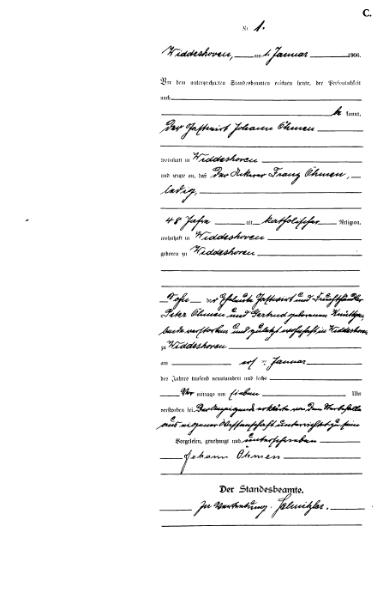 C.
Nr. 1.
Widdeshoven, am 1. Januar 190
Vor dem unterzeichneten Standesbeamten erschien heute, der Persönlichkeit
nach
be kannt,
der Gastwirt Johann Öhmen
wohnhaft in Widdeshoven
und zeigte an, daß der Ackerer Franz Öhmen,
ledig,
48 Jahre alt, katholischer Religion,
wohnhaft in Widdeshoven
geboren zu Widdeshoven
Sohn der Eheleute Gastwirt und Fruchthändler
Peter Öhmen und Gertrud geborenen
beide verstorben und zuletzt wohnhaft in Widdeshoven
zu Widdeshoven
am Januar
des Jahres tausend neunhundert und sechs
Vor mittags um sieben Uhr
verstorben sei. Der Anzeigende erklärte von dem Sterbefalle
aus eigener Wissenschaft unterrichtet zu sein
Vorgelesen, genehmigt und unterschrieben
Johann Öhmen
Der Standesbeamte.
In Vertretung.